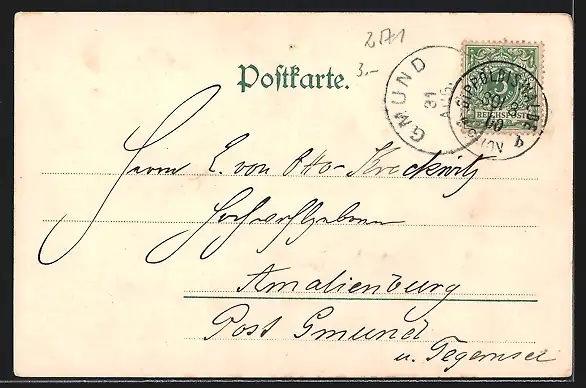 2171
3.-
Postkarte.
GMUND
31
AUG.
5
REICHSPOST
DIPPOLDISWALDE
30/8
00
Herrn E. von Otto-Kreckwitz
Hochwohlgeboren
Amalienburg
Post Gmund
u. Tegernsee